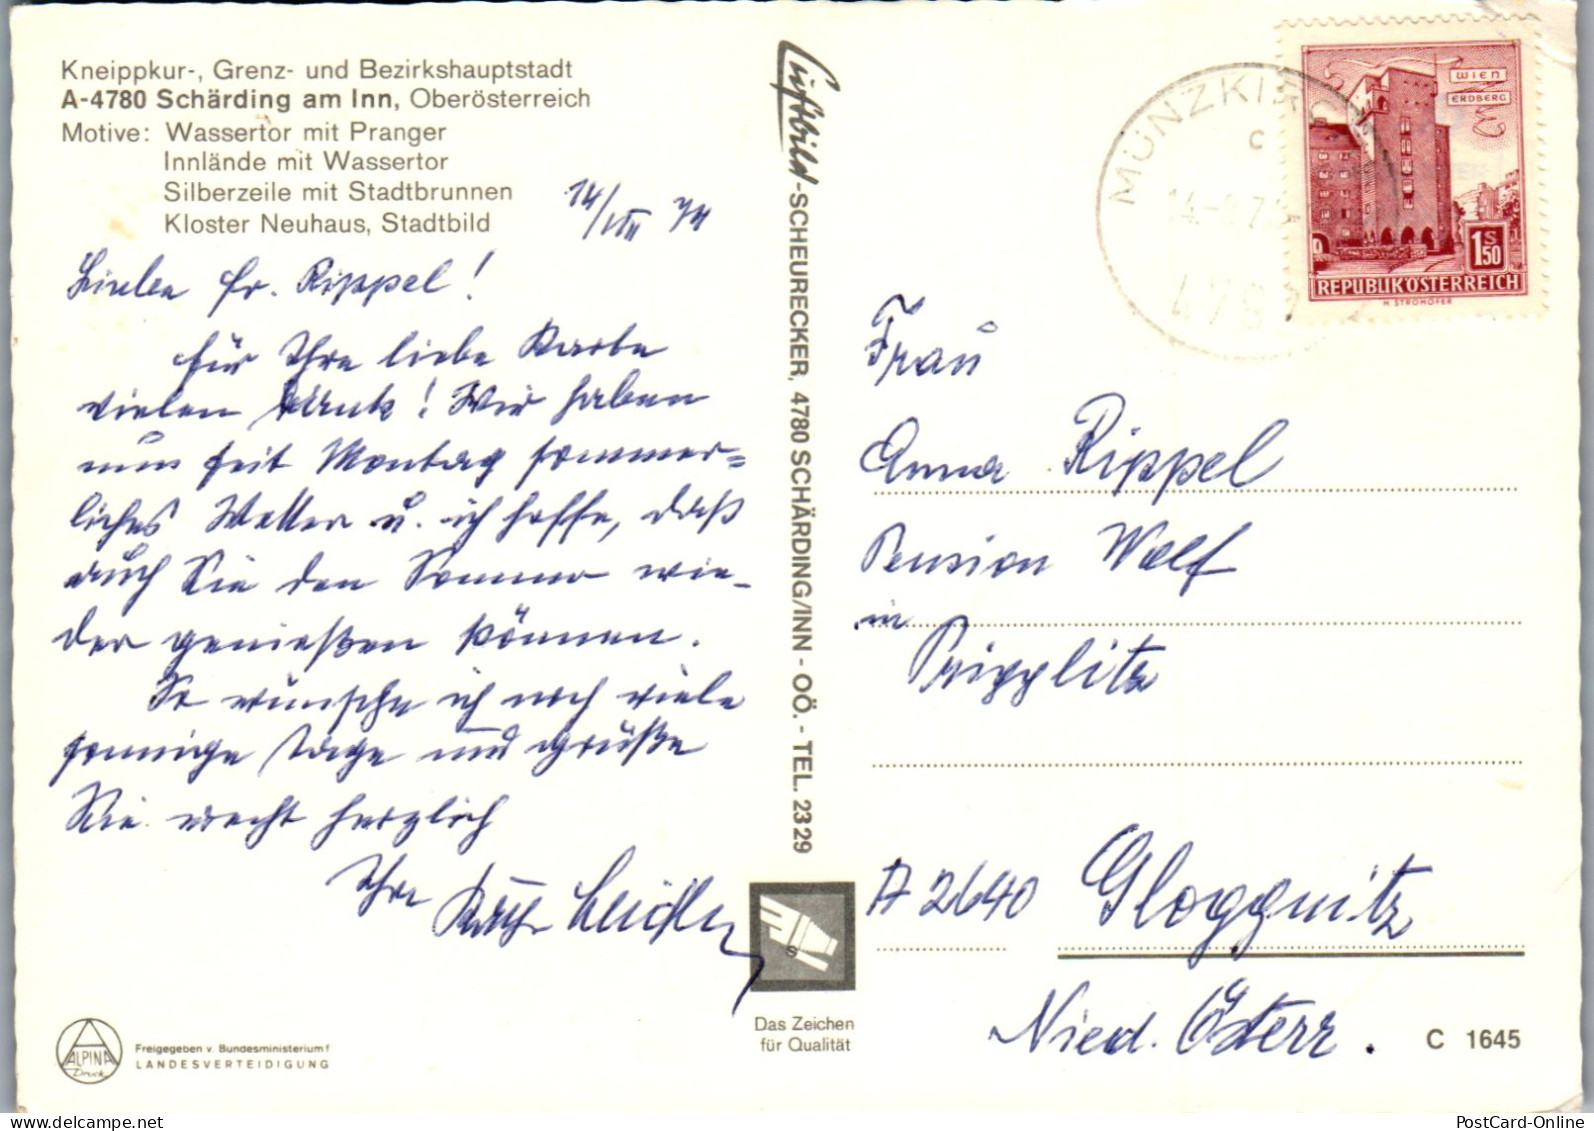 Kneippkur-, Grenz- und Bezirkshauptstadt
A-4780 Schärding am Inn, Oberösterreich
Motive: Wassertor mit Pranger
Innlände mit Wassertor
Silberzeile mit Stadtbrunnen
Kloster Neuhaus, Stadtbild
14/VIII 74
Liebe Fr. Rippel!
Für Ihre liebe Karte
vielen Dank! Wir haben
nun seit Montag sommer=
liches Wetter u. ich hoffe, daß
auch Sie den Sommer wie-
der genießen können.
So wünsche ich noch viele
sonnige Tage und grüße
Sie recht herzlich
Ihre
Luftbild-SCHEURECKER, 4780 SCHÄRDING/INN - OÖ. - TEL. 2329
Das Zeichen
für Qualität
ALPINA
Druck
Freigegeben v. Bundesministerium f
LANDESVERTEIDIGUNG
MÜNZKIRC
c
4
WIEN
ERDBERG
S
1 50
REPUBLIK ÖSTERREICH
H. STROHOFER
Frau
Anna Rippel
Pension Wolf
in
Prigglitz
A 2640 Gloggnitz
Nied. Österr.
C 1645
PostCard-Online